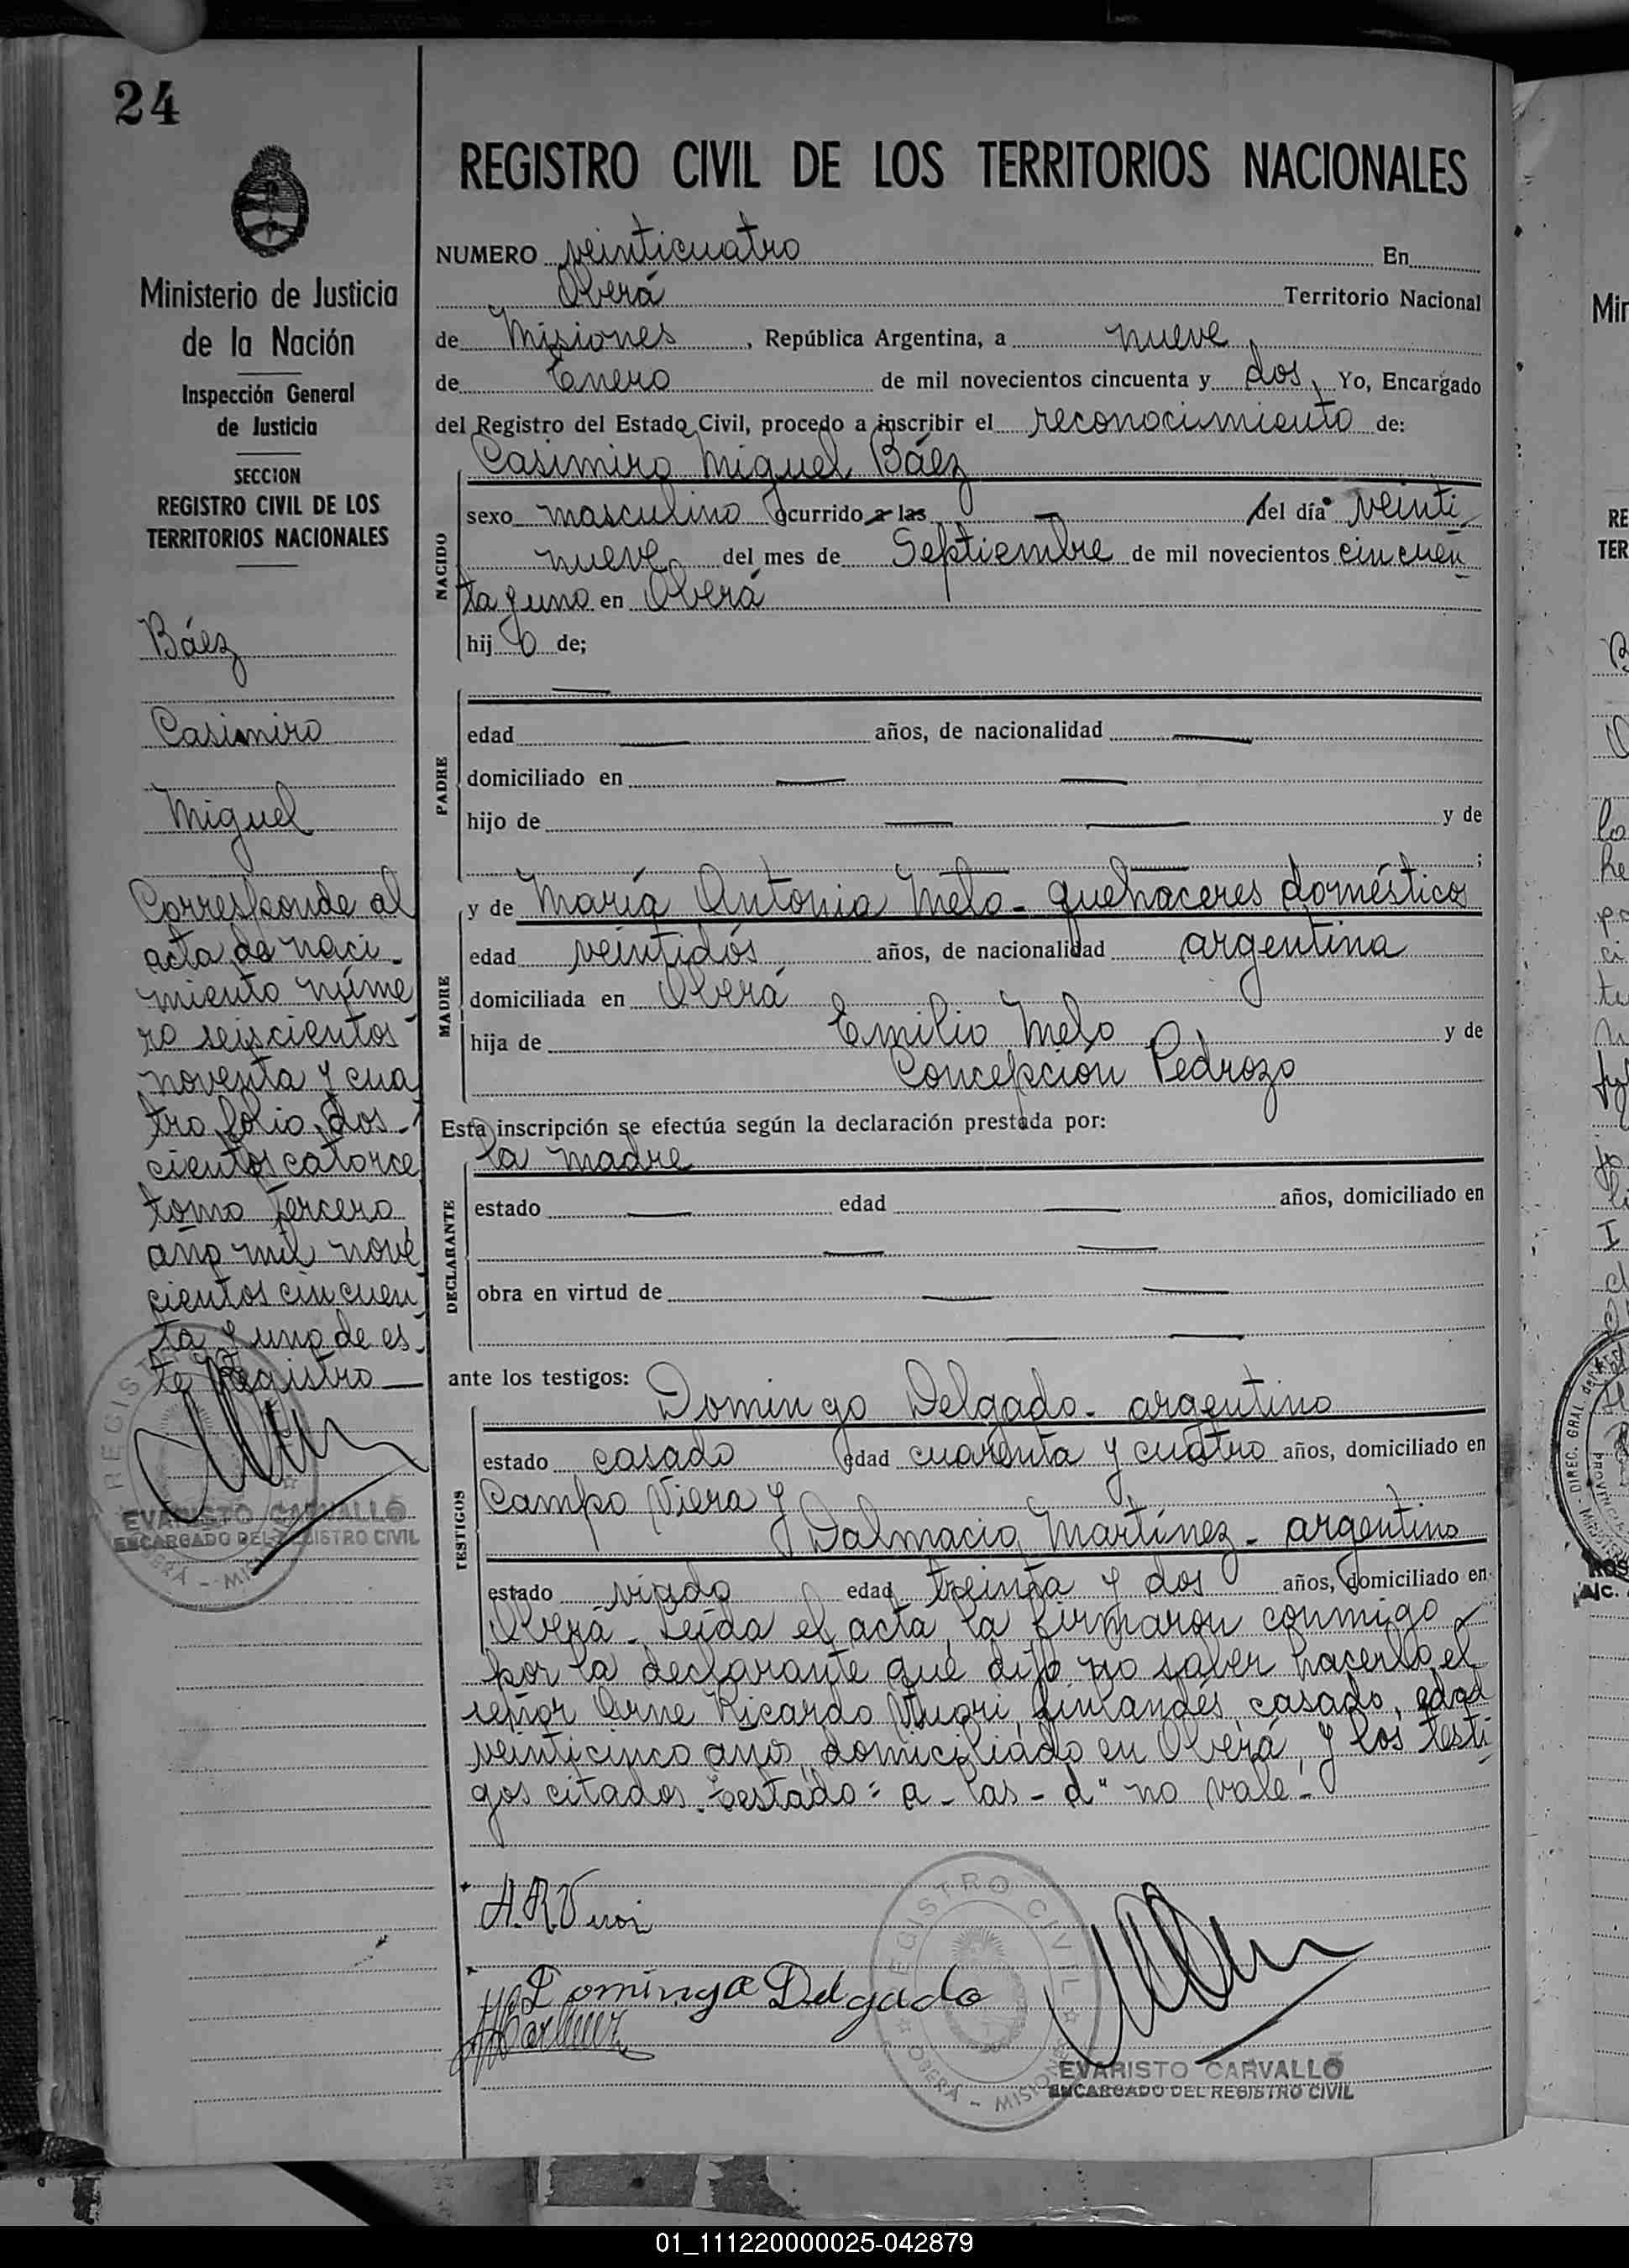 24
Ministerio de Justicia
de la Nación
Inspección General
de Justicia
SECCION
REGISTRO CIVIL DE LOS
TERRITORIOS NACIONALES
Báez
Casimiro
Miguel
Corresponde al
acta de naci-
miento núme
ro seiscientos
noventa y cua
tro folio dos-
cientos catorce
tomo tercero
año mil nove
cientos cincuen
ta y uno de es-
te Registro
EVARISTO CARVALLO
ENCARGADO DEL REGISTRO CIVIL
REGISTRO CIVIL DE LOS TERRITORIOS NACIONALES
NUMERO veinticuatro En
Oberá Territorio Nacional
de Misiones, República Argentina, a nueve
de Enero de mil novecientos cincuenta y dos, Yo, Encargado
del Registro del Estado Civil, procedo a inscribir el reconocimiento de:
Casimiro Miguel Báez
NACIDO
sexo masculino ocurrido a las — del día veinti
nueve del mes de Septiembre de mil novecientos cincuen
ta y uno en Oberá
hijo de;
PADRE
edad — años, de nacionalidad —
domiciliado en — —
hijo de — — y de
;
MADRE
y de María Antonia Melo - quehaceres domésticos
edad veintidós años, de nacionalidad argentina
domiciliada en Oberá
hija de Emilio Melo y de
Concepción Pedrozo
Esta inscripción se efectúa según la declaración prestada por:
la madre
DECLARANTE
estado — edad — años, domiciliado en
— —
obra en virtud de — —
— —
ante los testigos:
Domingo Delgado - argentino
TESTIGOS
estado casado edad cuarenta y cuatro años, domiciliado en
Campo Viera y
Dalmacio Martínez - argentino
estado viudo edad treinta y dos años, domiciliado en
Oberá - Leída el acta, la firmaron conmigo
por la declarante que dijo no saber hacerlo, el
señor Arne Ricardo Vuori, finlandés, casado, edad
veinticinco años, domiciliado en Oberá, y los testi
gos citados. Testado: a - las - d" no vale.-
A.R.Vuori
Domingo Delgado
Martinez
REGISTRO CIVIL
OBERÁ - MISIONES
EVARISTO CARVALLO
ENCARGADO DEL REGISTRO CIVIL
01_111220000025-042879